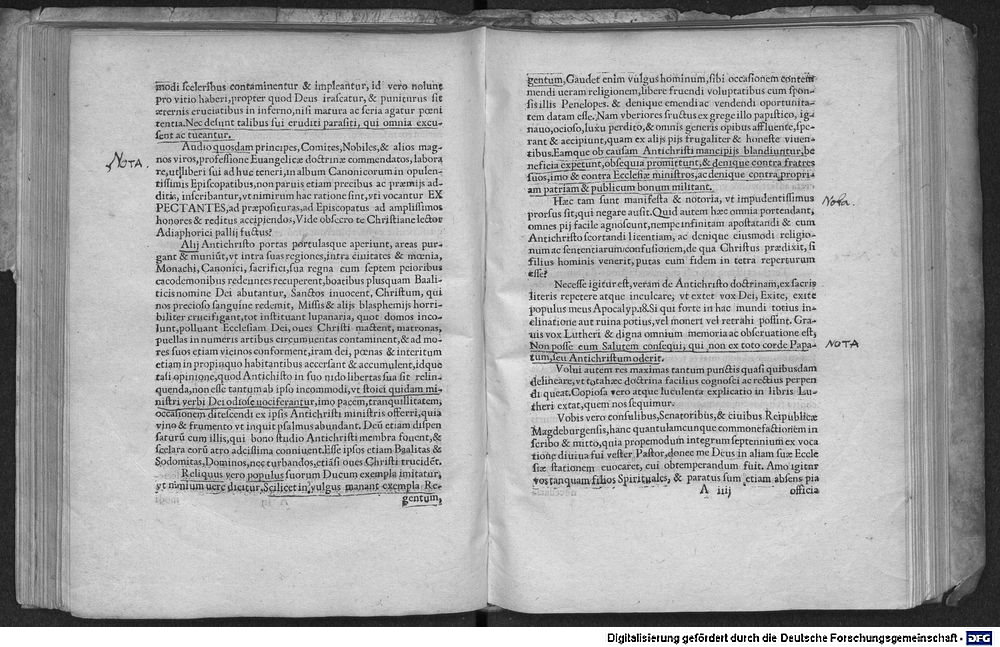 modi sceleribus contaminentur & impleantur, id vero nolunt
pro vitio haberi, propter quod Deus irascatur, & puniturus sit
æternis cruciatibus in inferno, nisi matura ac seria agatur pœni
tentia. Nec desunt talibus sui eruditi parasiti, qui omnia excu-
sent ac tueantur.
Audio quosdam principes, Comites, Nobiles, & alios mag-
NOTA.
nos viros, professione Euangelicæ doctrinæ commendatos, labora
re, ut liberi sui ad huc teneri, in album Canonicorum in opulen-
tissimis Episcopatibus, non paruis etiam precibus ac præmijs ad-
ditis, inscribantur, vt nimirum hac ratione sint, vti vocantur EX
PECTANTES, ad præposituras, ad Episcopatus ad amplissimos
honores & reditus accipiendos, Vide obsecro te Christiane lector
Adiaphorici pallij fuctus?
Alij Antichristo portas portulasque aperiunt, areas pur-
gant & muniūt, vt intra suas regiones, intra ciuitates & mœnia,
Monachi, Canonici, sacrifici, sua regna cum septem peioribus
cacodemonibus redeuntes recuperent, boatibus plusquam Baali-
ticis nomine Dei abutantur, Sanctos inuocent, Christum, qui
nos precioso sanguine redemit, Missis & alijs blasphemijs horri-
biliter crucifigant, tot instituant lupanaria, quot domos inco-
lunt, polluant Ecclesiam Dei, oues Christi mactent, matronas,
puellas in numeris artibus circumuentas contaminent, & ad mo-
res suos etiam vicinos conforment, iram dei, pœnas & interitum
etiam in propinquo habitantibus accersant & accumulent, idque
tali opinione, quod Antichisto in suo nido libertas sua sit relin-
quenda, non esse tantum ab ipso incommodi, vt stoici quidam mi-
nistri verbi Dei odiose vociferantur, imo pacem, tranquillitatem,
occasionem ditescendi ex ipsis Antichristi ministris offerri, quia
vino & frumento vt inquit psalmus abundant. Deū etiam dispen
saturū cum illis, qui bono studio Antichristi membra fouent, &
scelara eorū atro adcissima conniuent. Esse ipsos etiam Baalitas &
Sodomitas, Dominos, nec turbandos, etiāsi oues Christi trucidēt.
Reliquus vero populus suorum Ducum exempla imitatur,
vt nimium uere dicitur, Scilicet in vulgus manant exempla Re-
gentum,
gentum, Gaudet enim vulgus hominum, sibi occasionem contem
mendi ueram religionem, libere fruendi voluptatibus cum spon-
sis illis Penelopes. & denique emendi ac vendendi oportunita-
tem datam esse. Nam vberiores fructus ex grege illo papistico, ig-
nauo, ocioso, luxu perdito, & omnis generis opibus affluente, spe-
rant & accipiunt, quam ex alijs pijs frugaliter & honeste viuen-
tibus. Eamque ob causam Antichristi mancipijs blandiuntur, be
neficia expetunt, obsequia promittunt, & denique contra fratres
suos, imo & contra Ecclesiæ ministros, ac denique contra propri-
am patriam & publicum bonum militant.
Hæc tam sunt manifesta & notoria, vt impudentissimus
Nota.
prorsus sit, qui negare ausit. Quid autem hæc omnia portendant,
omnes pij facile agnoscunt, nempe infinitam apostatandi & cum
Antichristo scortandi licentiam, ac denique eiusmodi religio-
num ac sententiarum confusionem, de qua Christus prædixit, si
filius hominis venerit, putas eum fidem in tetra reperturum
esse?
Necesse igitur est, veram de Antichristo doctrinam, ex sacris
literis repetere atque inculcare, vt extet vox Dei, Exite, exite
populus meus Apocalyp. 18. Si qui forte in hac mundi totius in-
clinatione aut ruina potius, vel moneri vel retrahi possint. Gra-
uis vox Lutheri & digna omnium memoria ac obseruatione est,
Non posse eum Salutem consequi, qui non ex toto corde Papa-
NOTA
tum, seu Antichristum oderit.
Volui autem res maximas tantum punctis quasi quibusdam
delineare, vt tota hæc doctrina facilius cognosci ac rectius perpen
di queat. Copiosa vero atque luculenta explicatio in libris Lu-
theri extat, quem nos sequimur.
Vobis vero consulibus, Senatoribus, & ciuibus Reipublicæ
Magdeburgensis, hanc quantulamcunque commonefactionem in
scribo & mitto, quia propemodum integrum septennium ex voca
tione diuina fui vester Pastor, donec me Deus in aliam suæ Eccle
siæ stationem euocaret, cui obtemperandum fuit. Amo igitur
vos tanquam filios Spirituales, & paratus sum etiam absens pia
A iiij officia
Digitalisierung gefördert durch die Deutsche Forschungsgemeinschaft - DFG